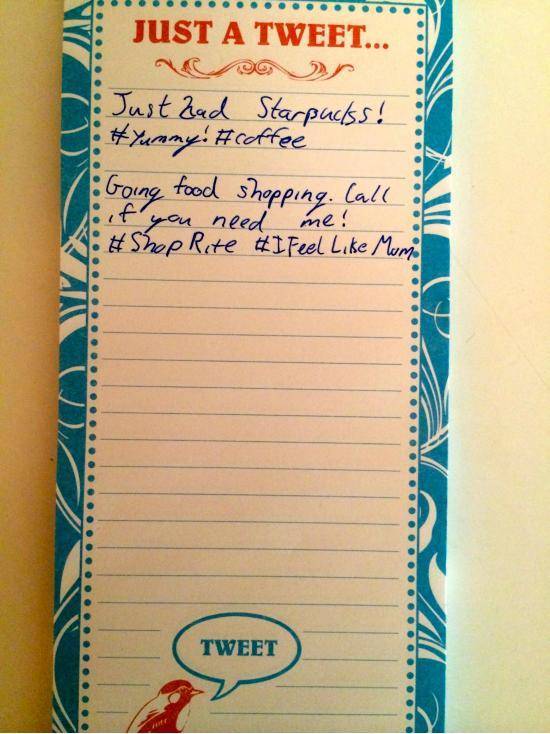 JUST A TWEET...
Just had Starbucks!
#Yummy! #coffee
Going food shopping. Call
if you need me!
#ShopRite #IFeelLikeMum
TWEET